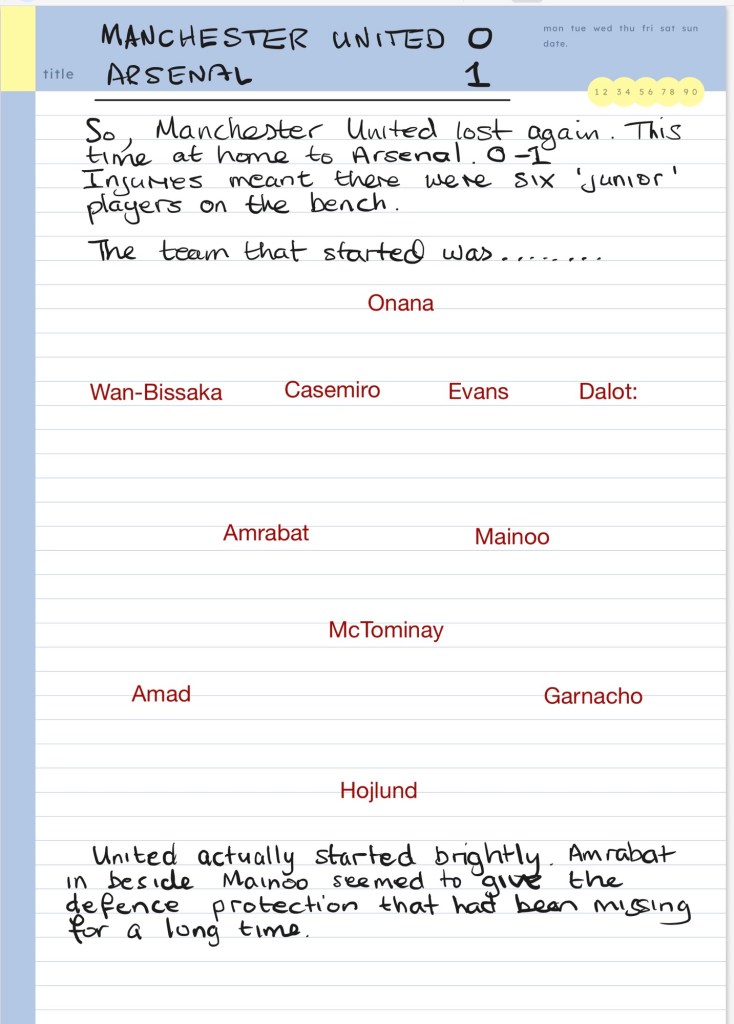 MANCHESTER UNITED 0
mon tue wed thu fri sat sun
date.
title
ARSENAL 1
1 2 3 4 5 6 7 8 9 0
So, Manchester United lost again. This
time at home to Arsenal. 0-1
Injuries meant there were six 'junior'
players on the bench.
The team that started was........
Onana
Wan-Bissaka Casemiro Evans Dalot:
Amrabat Mainoo
McTominay
Amad Garnacho
Hojlund
United actually started brightly. Amrabat
in beside Mainoo seemed to give the
defence protection that had been missing
for a long time.